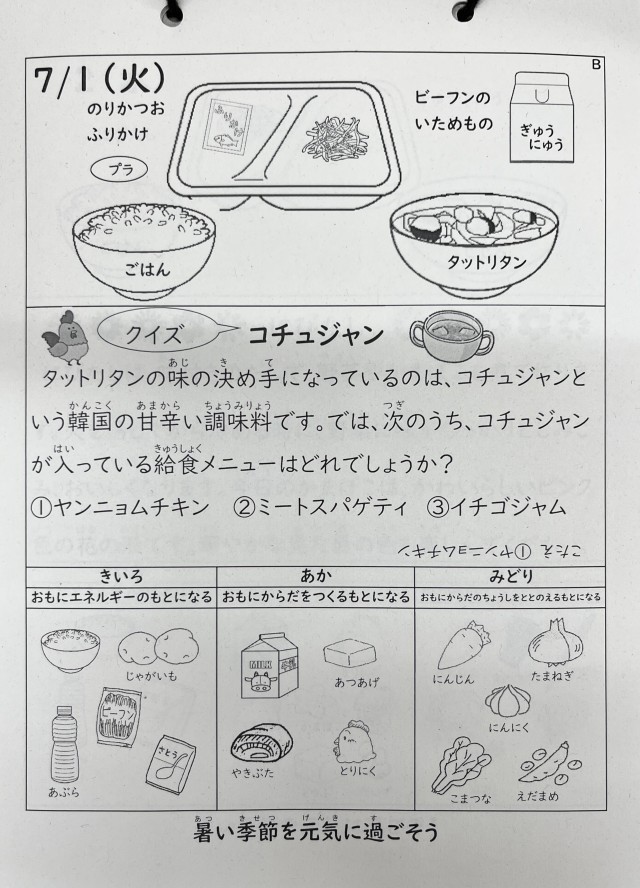 B
7/1(火)
のりかつお
ふりかけ
プラ
ふりかけ
ビーフンの
いためもの
ぎゅう
にゅう
ごはん
タットリタン
クイズ
コチュジャン
タットリタンの味の決め手になっているのは、コチュジャンと
いう韓国の甘辛い調味料です。では、次のうち、コチュジャン
が入っている給食メニューはどれでしょうか?
①ヤンニョムチキン ②ミートスパゲティ ③イチゴジャム
こたえ ①ヤンニョムチキン
きいろ
おもにエネルギーのもとになる
じゃがいも
ビーフン
さとう
あぶら
あか
おもにからだをつくるもとになる
MILK
牛乳
あつあげ
やきぶた
とりにく
みどり
おもにからだのちょうしをととのえるもとになる
にんじん
たまねぎ
にんにく
こまつな
えだまめ
暑い季節を元気に過ごそう